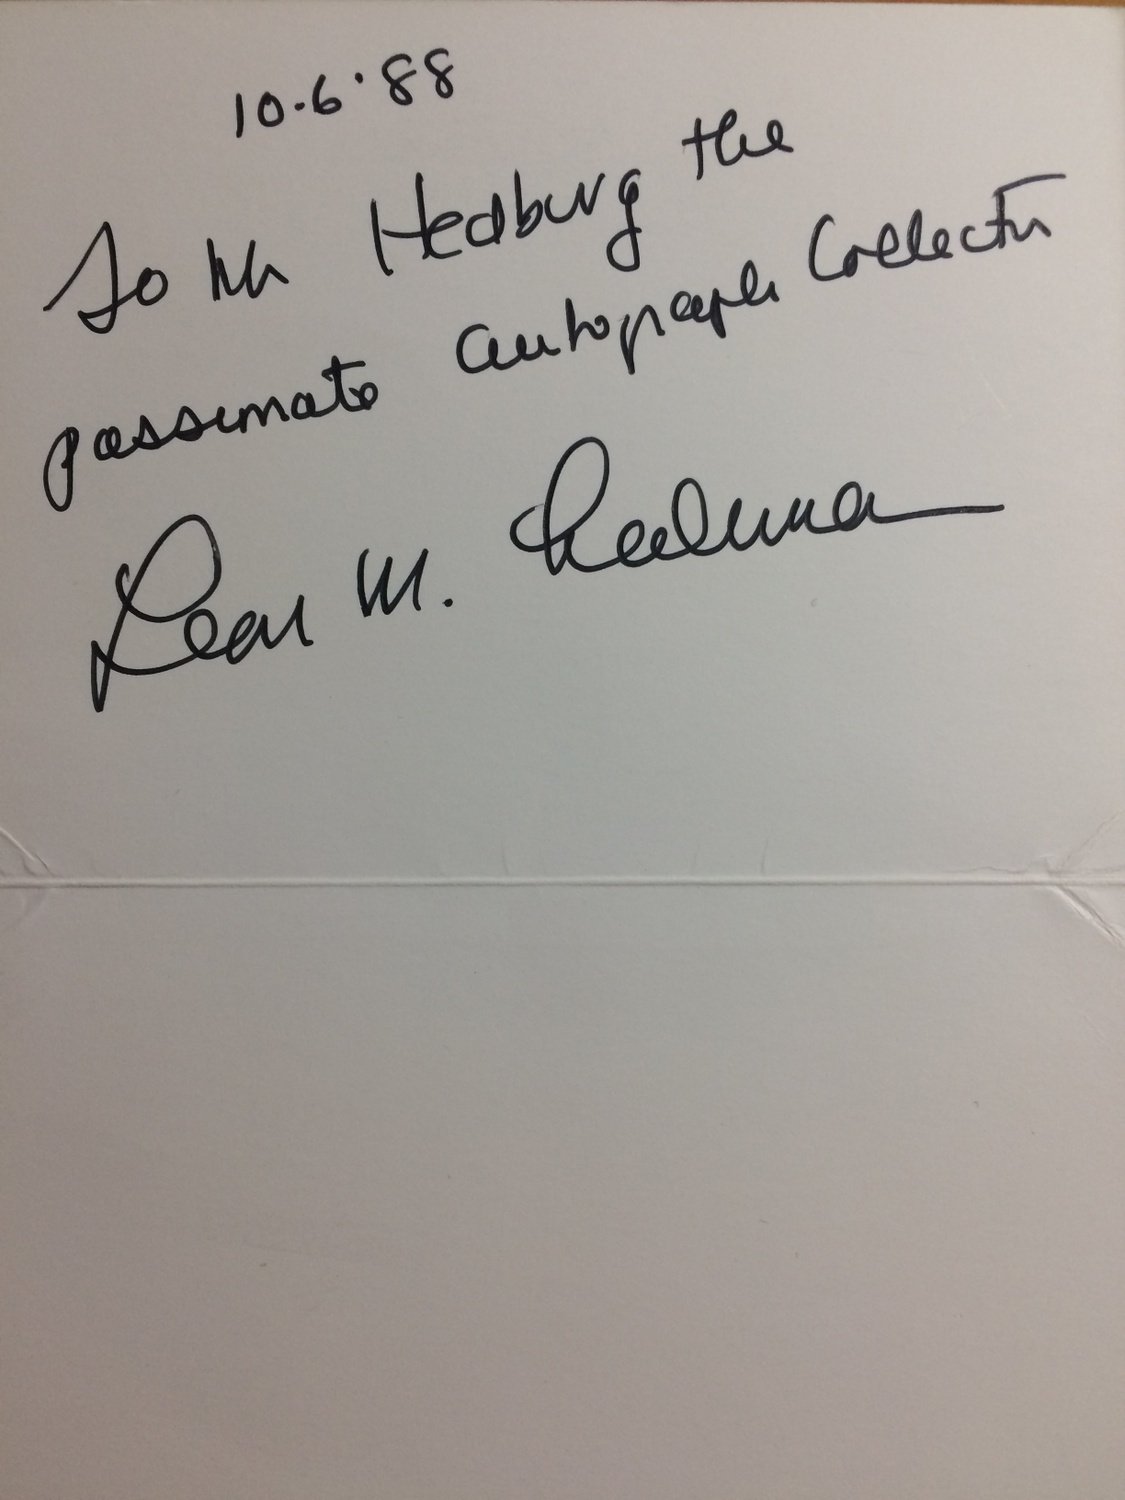 10.6.88
To Mr Hedburg the
passionate autograph Collector
Leon M. Lederman